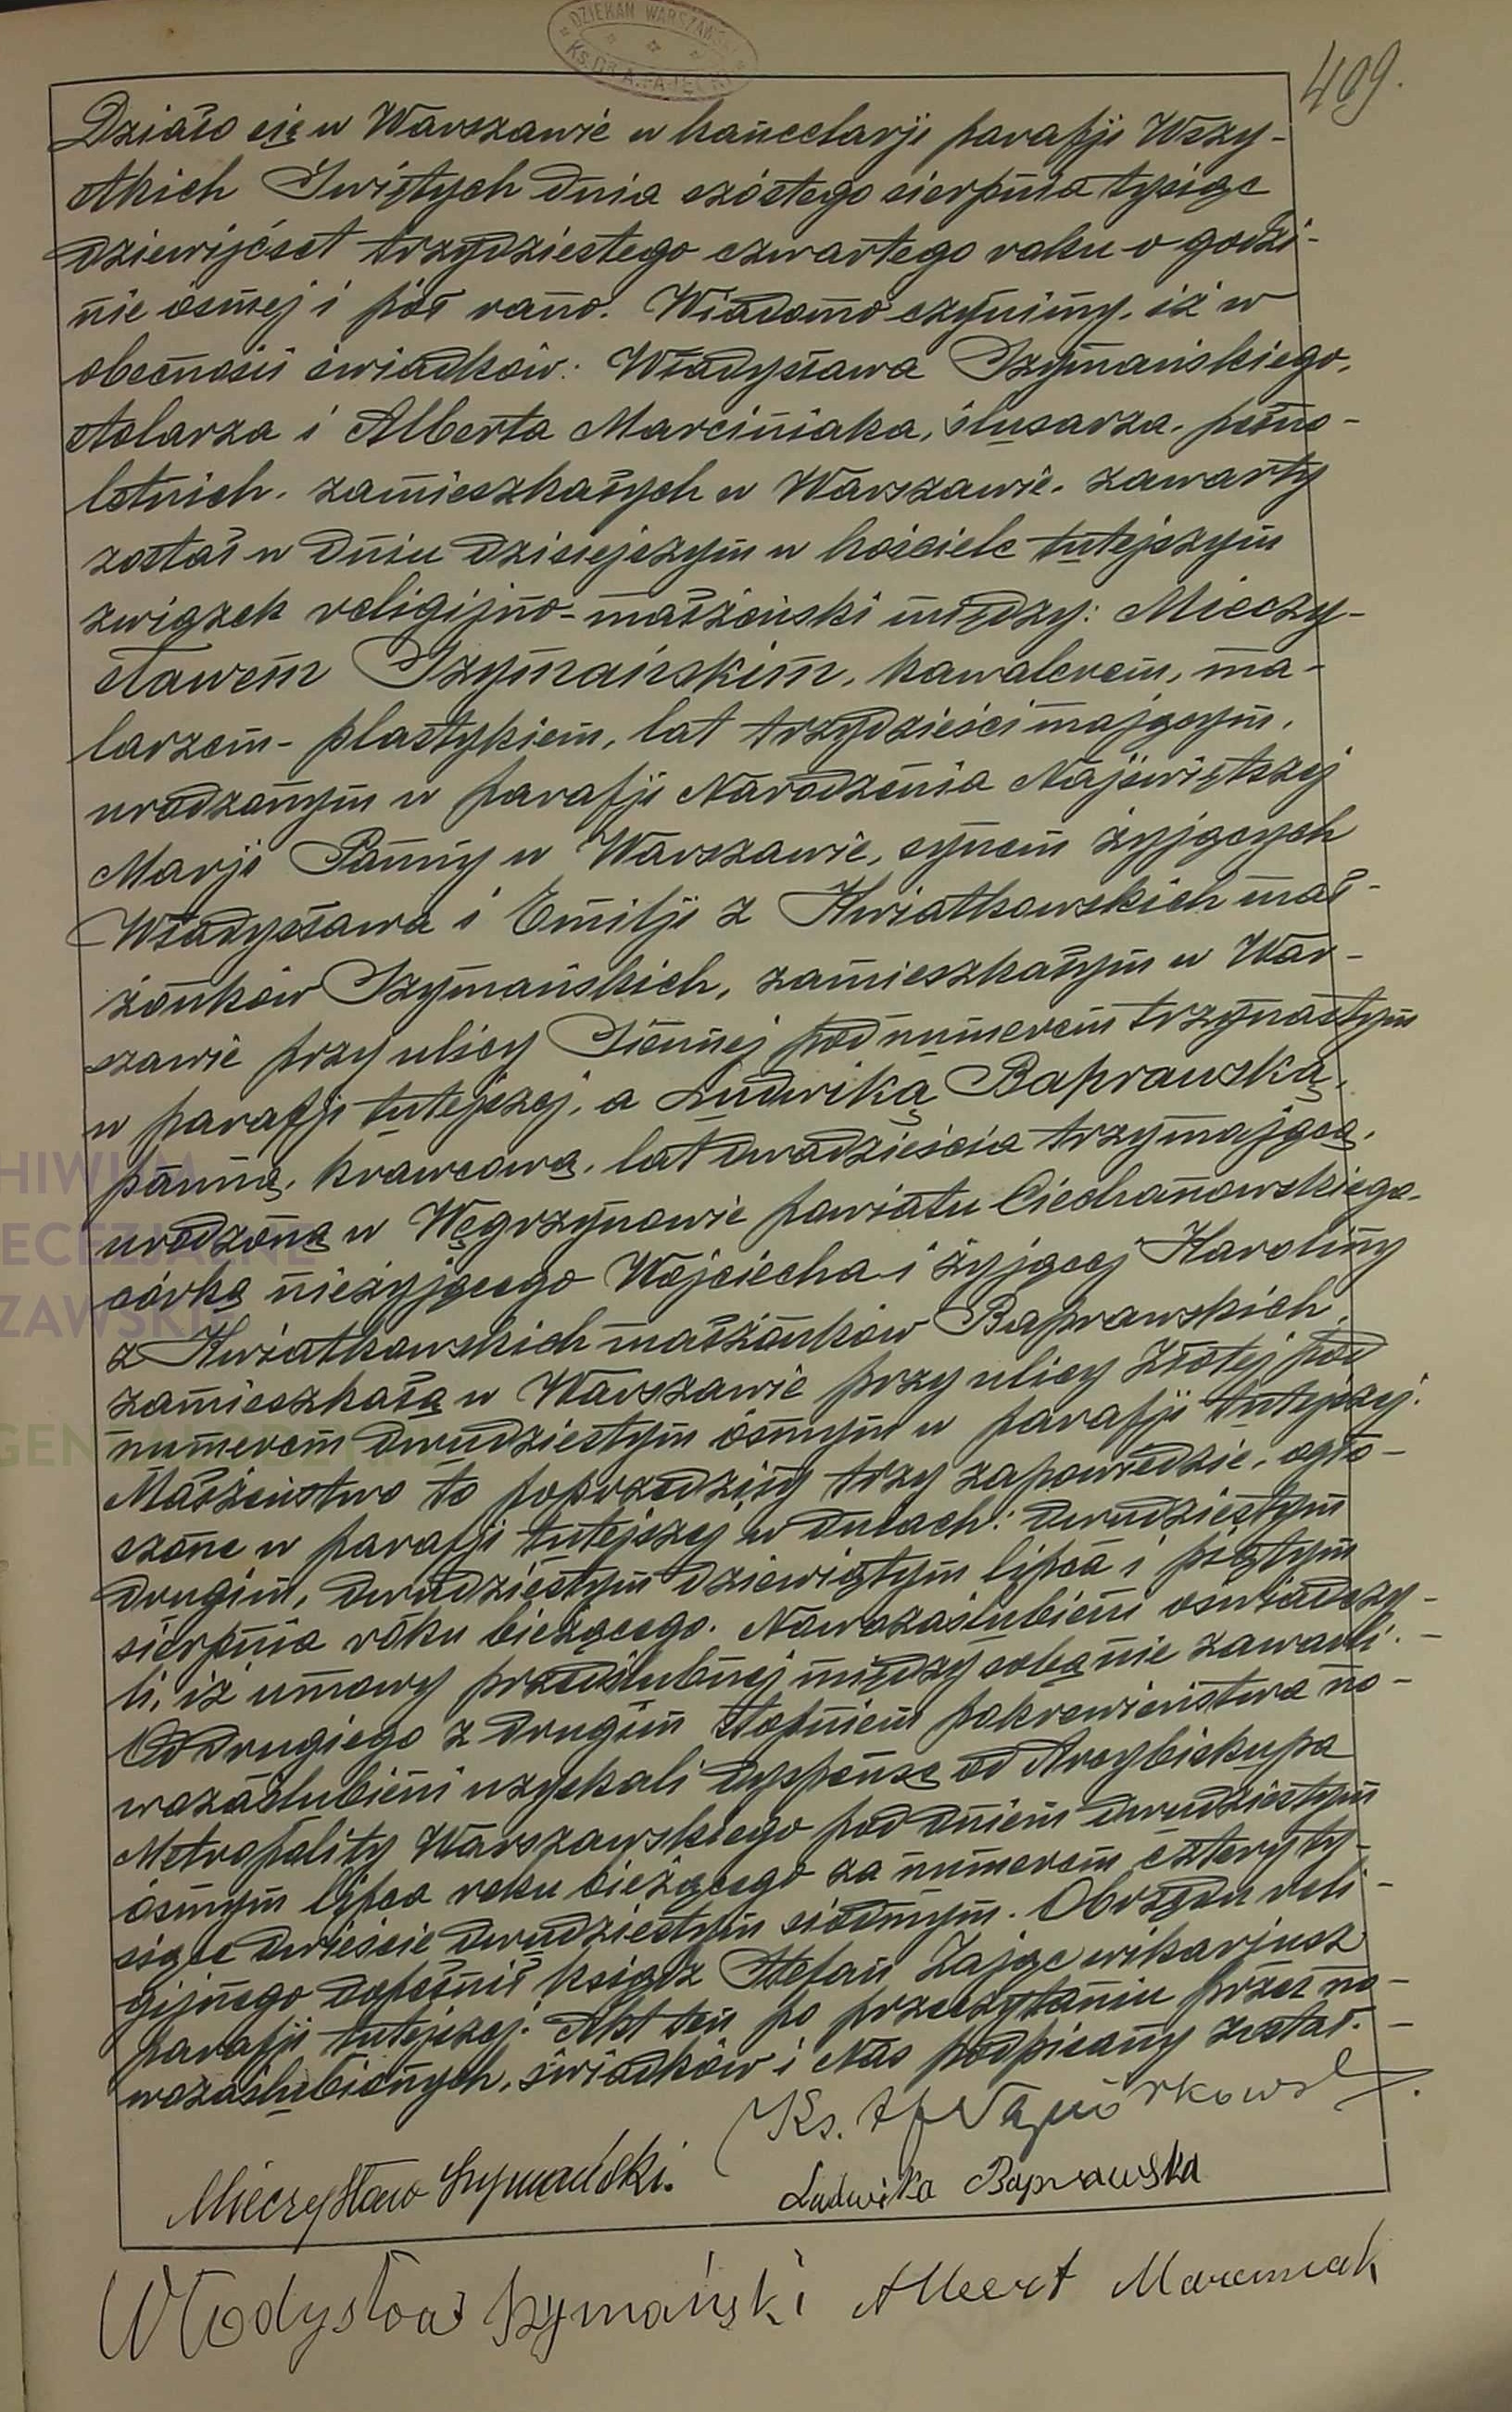 DZIEKAN WARSZAWSKI
409.
Działo się w Warszawie w kancelarji parafji Wszy-
stkich Świętych dnia szóstego sierpnia tysiąc
dziewięćset trzydziestego czwartego roku o godzi-
nie ósmej i pół rano. Wiadomo czynimy, iż w
obecności świadków: Władysława Szymańskiego,
stolarza i Alberta Marciniaka, ślusarza, pełno-
letnich, zamieszkałych w Warszawie, zawarty
został w dniu dzisiejszym w kościele tutejszym
związek religijno-małżeński między: Mieczy-
sławem Szymańskim, kawalerem, ma-
larzem-plastykiem, lat trzydzieści mającym,
urodzonym w parafji Narodzenia Najświętszej
Marji Panny w Warszawie, synem żyjących
Władysława i Emilji z Kwiatkowskich mał-
żonków Szymańskich, zamieszkałym w War-
szawie przy ulicy Siennej pod numerem trzynastym
w parafji tutejszej, a Ludwiką Baprawską,
panną, krawcową, lat dwadzieścia trzy mającą,
urodzoną w Węgrzynowie powiatu Ciechanowskiego,
córką nieżyjącego Wojciecha i żyjącej Karoliny
z Kwiatkowskich małżonków Baprawskich,
zamieszkałą w Warszawie przy ulicy Złotej pod
numerem dwudziestym ósmym w parafji tutejszej.
Małżeństwo to poprzedziły trzy zapowiedzie, ogło-
szone w parafji tutejszej w dniach: dwudziestym
drugim, dwudziestym dziewiątym lipca i piątym
sierpnia roku bieżącego. Nowozaślubieni oświadczy-
li, iż umowy przedślubnej między sobą nie zawarli. -
Od drugiego z drugim stopniem pokrewieństwa no-
wozaślubieni uzyskali dyspensę od Arcybiskupa
Metropolity Warszawskiego pod dniem dwudziestym
ósmym lipca roku bieżącego za numerem cztery ty-
siące dwieście dwudziestym siódmym. Obrzędu reli-
gijnego dopełnił ksiądz Stefan Zając wikarjusz
parafji tutejszej. Akt ten po przeczytaniu przez no-
wozaślubionych, świadków i Nas podpisany został. -
Ks. Napiórkowski
Mieczysław Szymański.
Ludwika Baprawska
Władysław Szymański Albert Marciniak